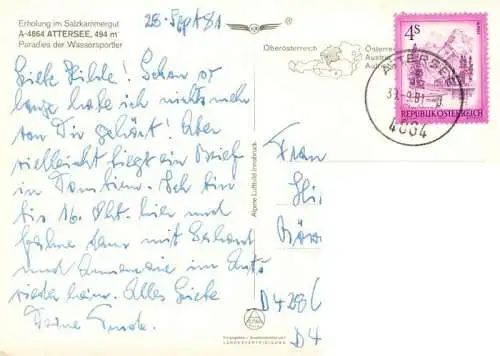 Erholung im Salzkammergut
A-4864 ATTERSEE, 494 m
Paradies der Wassersportler
28. Sept 81
Liebe Hilde! Schon so
lange habe ich nichts mehr
von Dir gehört! Aber
vielleicht liegt ein Brief
in Ich bin
bis 16. Okt. hier und
fahre dann mit Gerhard
und Annemarie im Auto
wieder heim. Alles Liebe
Deine
Alpine Luftbild Innsbruck
Oberösterreich
Österreich
Austria
4S
REPUBLIK ÖSTERREICH
ATTERSEE
4864
Frau
D 4